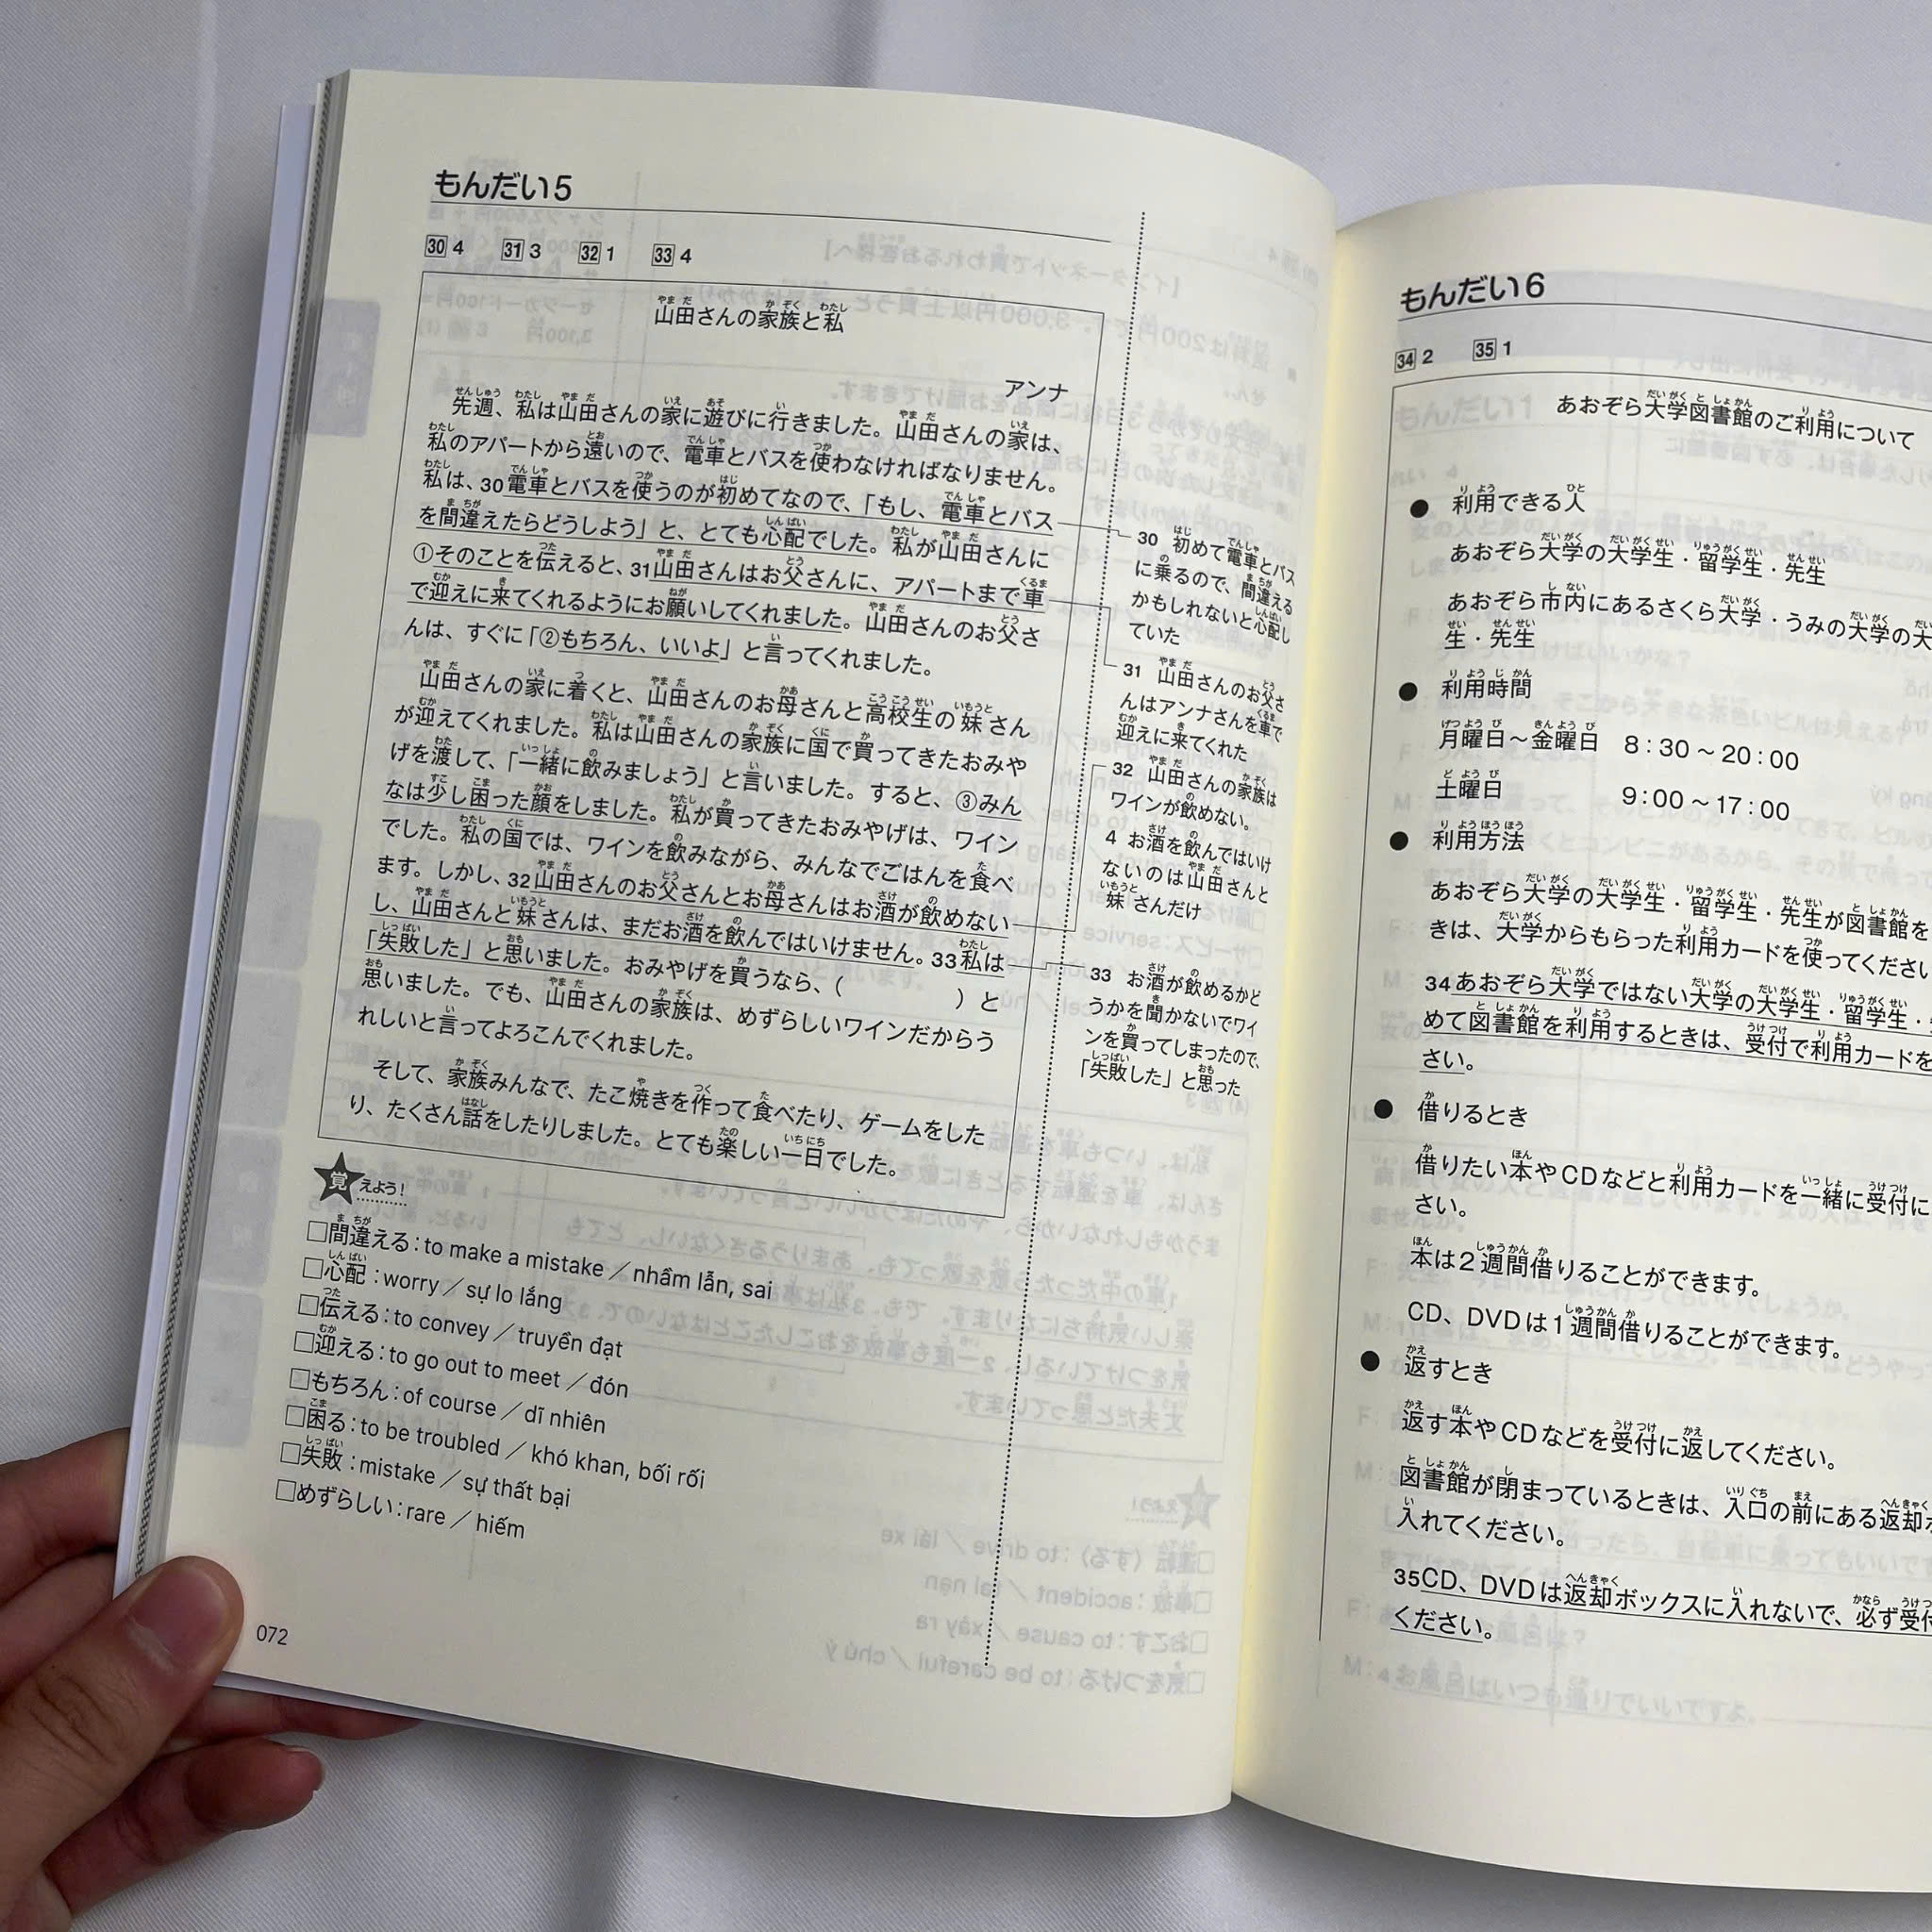 もんだい5
30 4 31 3 32 1 33 4
山田さんの家族と私
アンナ
先週、私は山田さんの家に遊びに行きました。山田さんの家は、
私のアパートから遠いので、電車とバスを使わなければなりません。
私は、30電車とバスを使うのが初めてなので、「もし、電車とバス
を間違えたらどうしよう」と、とても心配でした。私が山田さんに
①そのことを伝えると、31山田さんはお父さんに、アパートまで車
で迎えに来てくれるようにお願いしてくれました。山田さんのお父さ
んは、すぐに「②もちろん、いいよ」と言ってくれました。
山田さんの家に着くと、山田さんのお母さんと高校生の妹さん
が迎えてくれました。私は山田さんの家族に国で買ってきたおみや
げを渡して、「一緒に飲みましょう」と言いました。すると、③みん
なは少し困った顔をしました。私が買ってきたおみやげは、ワイン
でした。私の国では、ワインを飲みながら、みんなでごはんを食べ
ます。しかし、32山田さんのお父さんとお母さんはお酒が飲めない
し、山田さんと妹さんは、まだお酒を飲んではいけません。33私は
「失敗した」と思いました。おみやげを買うなら、( )と
思いました。でも、山田さんの家族は、めずらしいワインだからう
れしいと言ってよろこんでくれました。
そして、家族みんなで、たこ焼きを作って食べたり、ゲームをした
り、たくさん話をしたりしました。とても楽しい一日でした。
30 初めて電車とバス
に乗るので、間違える
かもしれないと心配し
ていた
31 山田さんのお父さ
んはアンナさんを車で
迎えに来てくれた
32 山田さんの家族は
ワインが飲めない。
4 お酒を飲んではいけ
ないのは山田さんと
妹さんだけ
33 お酒が飲めるかど
うかを聞かないでワイ
ンを買ってしまったので、
「失敗した」と思った
覚えよう!
□間違える:to make a mistake/nhầm lẫn, sai
□心配:worry/sự lo lắng
□伝える:to convey/truyền đạt
□迎える:to go out to meet/đón
□もちろん:of course/dĩ nhiên
□困る:to be troubled/khó khan, bối rối
□失敗:mistake/sự thất bại
□めずらしい:rare/hiếm
072
もんだい6
34 2 35 1
あおぞら大学図書館のご利用について
● 利用できる人
あおぞら大学の大学生・留学生・先生
あおぞら市内にあるさくら大学・うみの大学の大
生・先生
● 利用時間
月曜日~金曜日 8:30~20:00
土曜日 9:00~17:00
● 利用方法
あおぞら大学の大学生・留学生・先生が図書館を
きは、大学からもらった利用カードを使ってください
34あおぞら大学ではない大学の大学生・留学生・
めて図書館を利用するときは、受付で利用カードを
さい。
● 借りるとき
借りたい本やCDなどと利用カードを一緒に受付に
さい。
本は2週間借りることができます。
CD、DVDは1週間借りることができます。
● 返すとき
返す本やCDなどを受付に返してください。
図書館が閉まっているときは、入口の前にある返却ボ
入れてください。
35CD、DVDは返却ボックスに入れないで、必ず受付
ください。